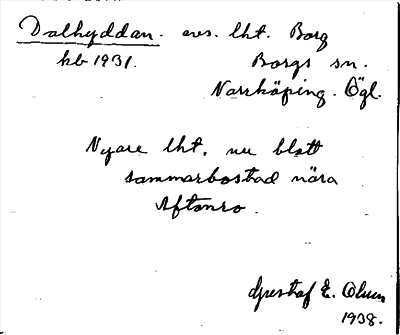 Dalhyddan. avs. lht. Borg
kb 1931. Borgs sn.
Norrköping. Ögl.
Nyare lht. nu blott
sommarbostad nära
Aftonro.
Gustaf E. Olsson
1938.